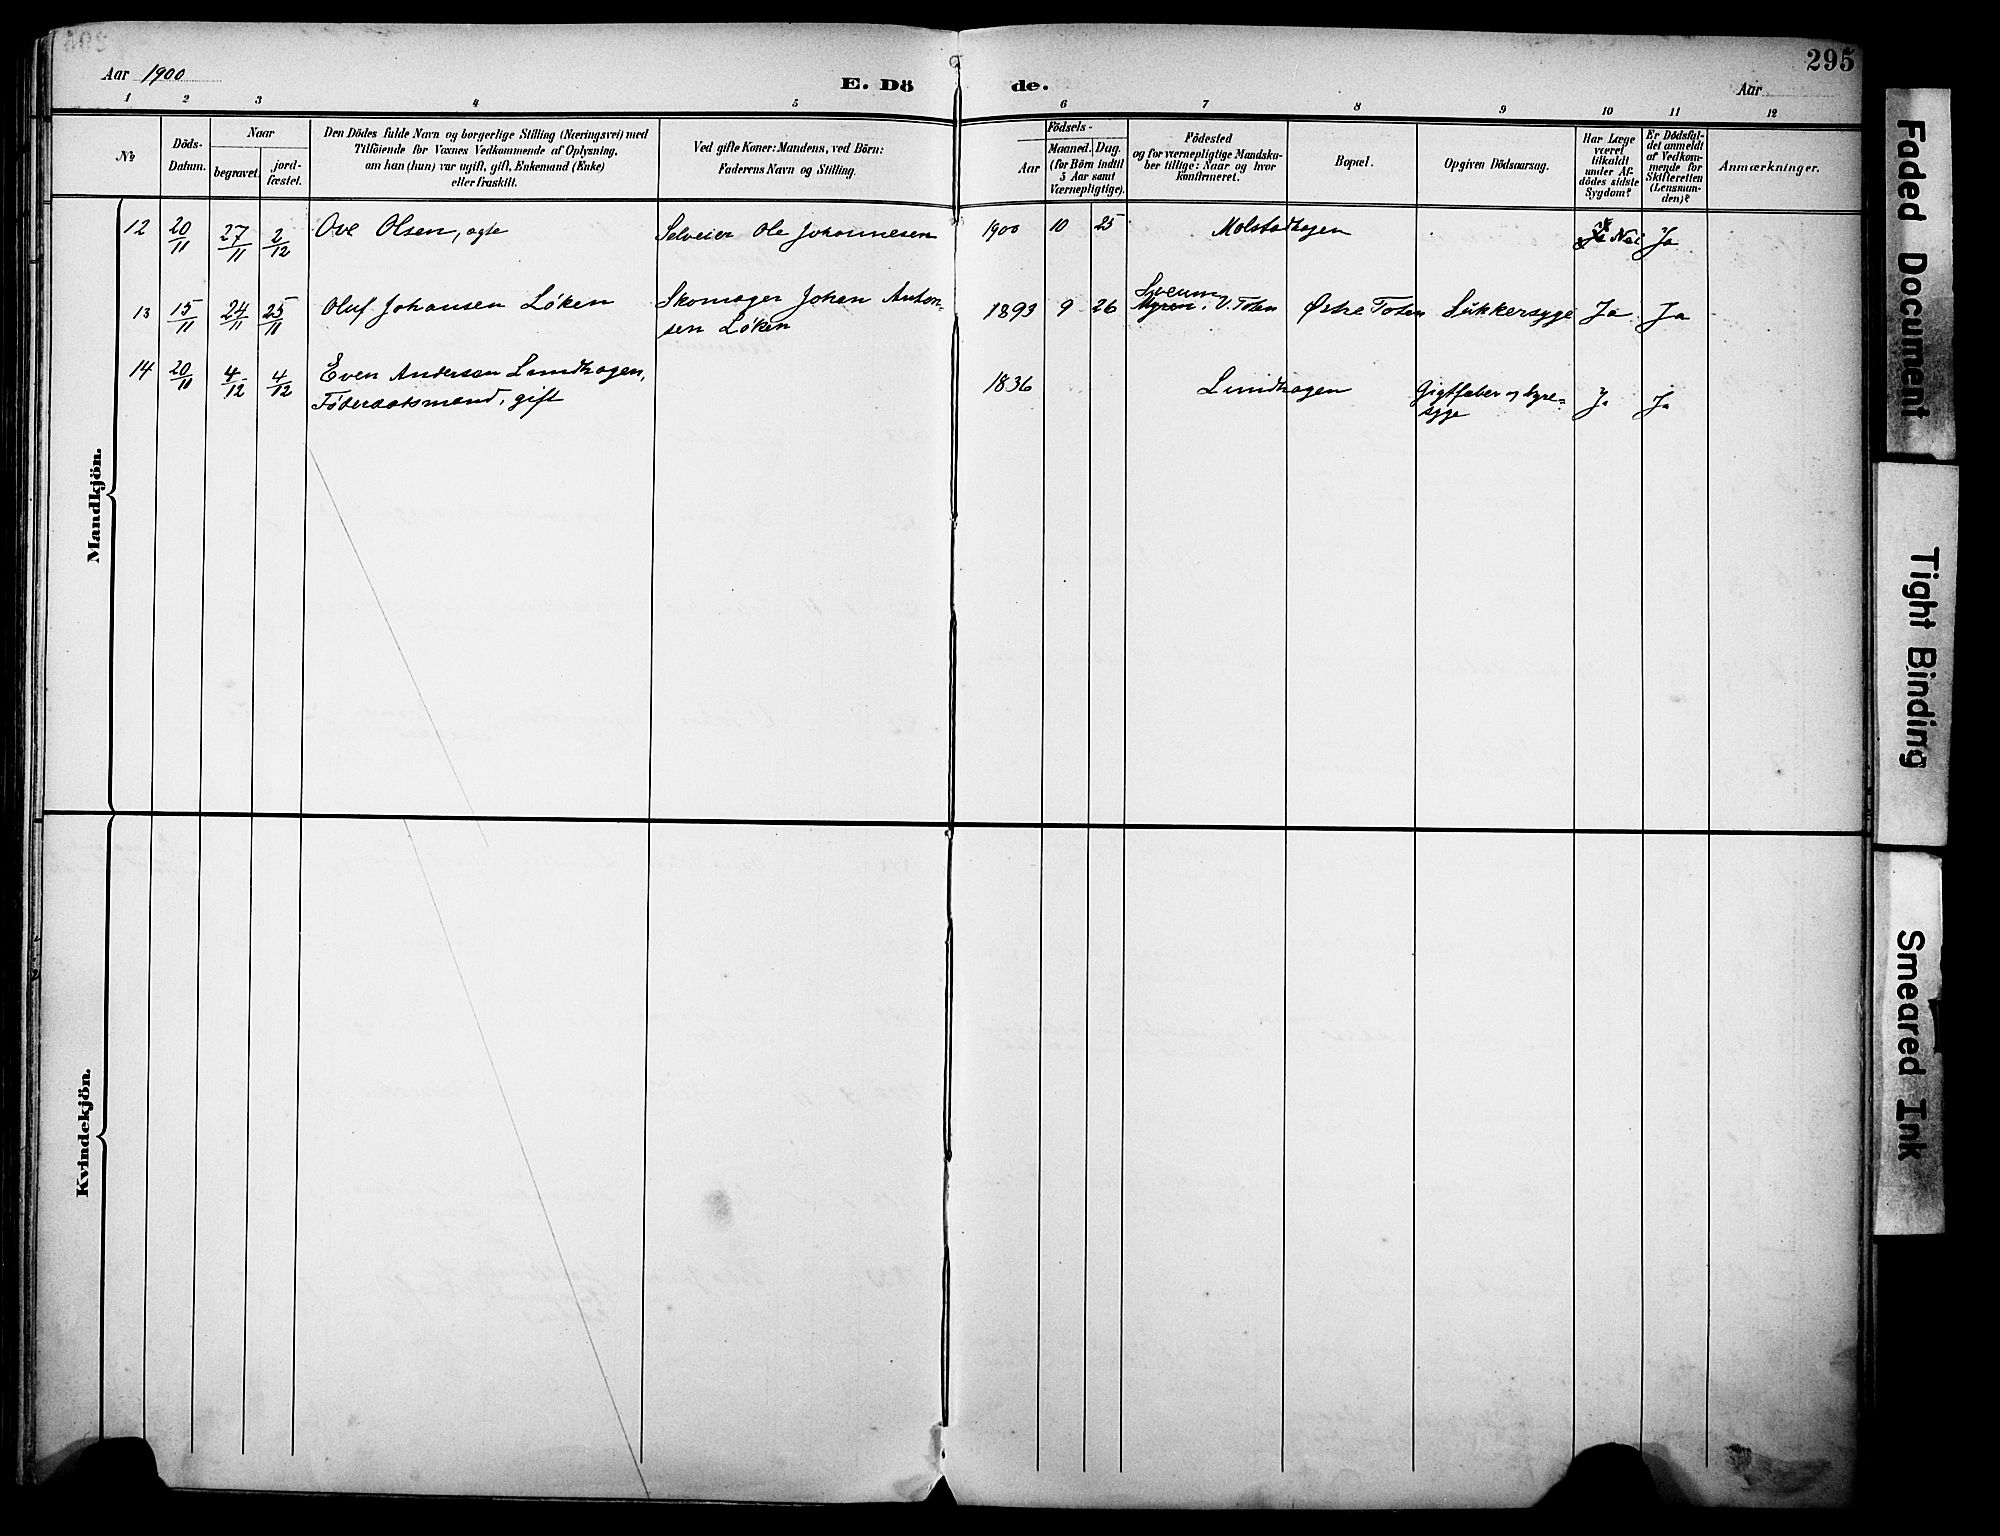 295
Aar 1900
E. Dö de.
Aar
1 2 3 4 5 6 7 8 9 10 11 12
№
Döds-
Datum.
Naar
begravet.
jord-
fæstet.
Den Dödes fulde Navn og borgerlige Stilling (Næringsvei) med
Tilföiende for Voxnes Vedkommende af Oplysning,
om han (hun) var ugift, gift, Enkemand (Enke)
eller fraskilt.
Ved gifte Koner: Mandens, ved Börn:
Faderens Navn og Stilling.
Födsels-
Aar
Maaned.
Dag.
(for Börn indtil
5 Aar samt
Værnepligtige).
Födested
og for værnepligtige Mandska-
ber tillige: Naar og hvor
konfirmeret.
Bopæl.
Opgiven Dödsaarsag.
Har Læge
været
tilkaldt
under Af-
dödes sidste
Sygdom?
Er Dödsfal-
det anmeldt
af Vedkom-
mende for
Skifteretten
(Lensman-
den)?
Anmærkninger.
Mandkjön.
12 20/11 27/11 2/12 Ove Olsen, ægte Selveier Ole Johannesen 1900 10 25 Molstadhagen Ja Nei Ja
13 15/11 24/11 25/11 Oluf Johansen Løken Skomager Johan Anton-
sen Løken 1893 9 26 Sveum
Myren, V. Toten Østre Toten Sukkersyge Ja Ja
14 20/11 4/12 4/12 Even Andersen Lundhagen,
Føderaadsmand, gift 1836 Lundhagen Gigtfeber og Nyre-
syge Ja Ja
Kvindekjön.
Faded Document
Tight Binding
Smeared Ink